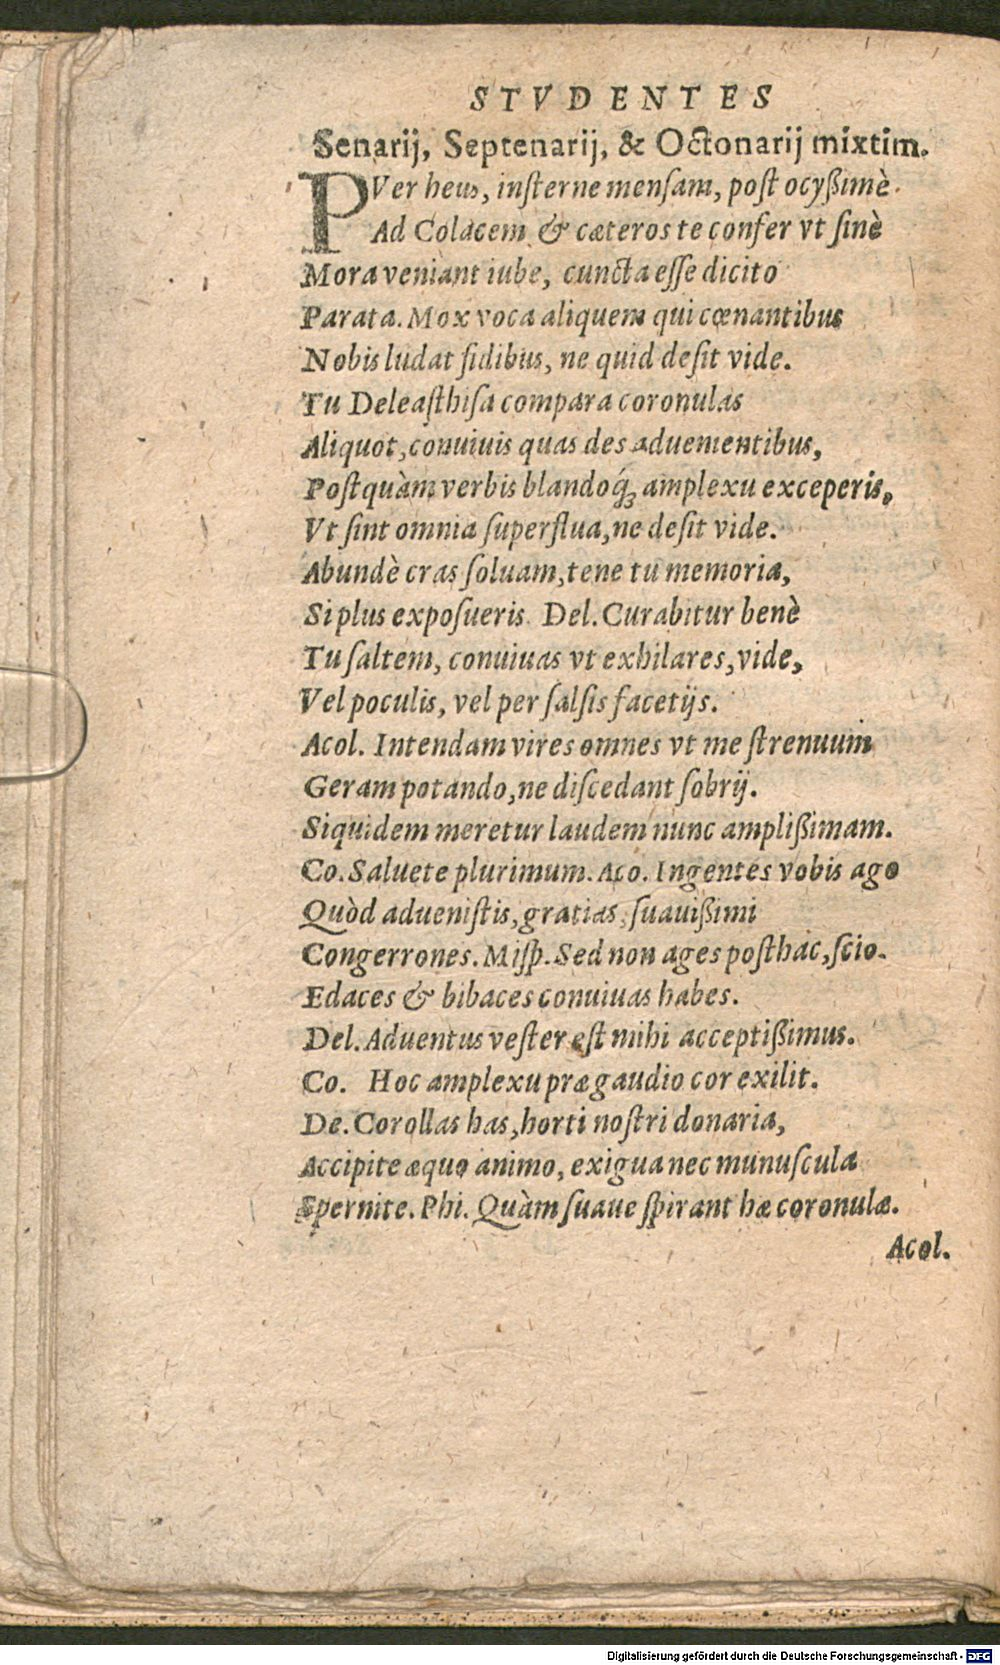 STVDENTES
Senarij, Septenarij, & Octonarij mixtim.
PVer heus, inſterne menſam, poſt ocyßimè.
Ad Colacem & cæteros te confer vt ſinè
Mora veniant iube, cuncta eſſe dicito
Parata. Mox voca aliquem qui cœnantibus
Nobis ludat fidibus, ne quid deſit vide.
Tu Deleaſthiſa compara coronulas
Aliquot, conuiuis quas des aduenientibus,
Poſtquàm verbis blandoq́ꝫ amplexu exceperis,
Vt ſint omnia ſuperflua, ne deſit vide.
Abundè cras ſoluam, tene tu memoria,
Si plus expoſueris. Del. Curabitur benè
Tu ſaltem, conuiuas vt exhilares, vide,
Vel poculis, vel per ſalſis facetijs.
Acol. Intendam vires omnes vt me ſtrenuum
Geram potando, ne diſcedant ſobrij.
Siquidem meretur laudem nunc amplißimam.
Co. Saluete plurimum. Aco. Ingentes vobis ago
Quòd adueniſtis, gratias, ſuauißimi
Congerrones. Miſp. Sed non ages poſthac, ſcio.
Edaces & bibaces conuiuas habes.
Del. Aduentus veſter eſt mihi acceptißimus.
Co. Hoc amplexu præ gaudio cor exilit.
De. Corollas has, horti noſtri donaria,
Accipite æquo animo, exigua nec munuſcula
Spernite. Phi. Quàm ſuaue ſpirant hæ coronulæ.
Acol.
Digitalisierung gefördert durch die Deutsche Forschungsgemeinschaft - DFG